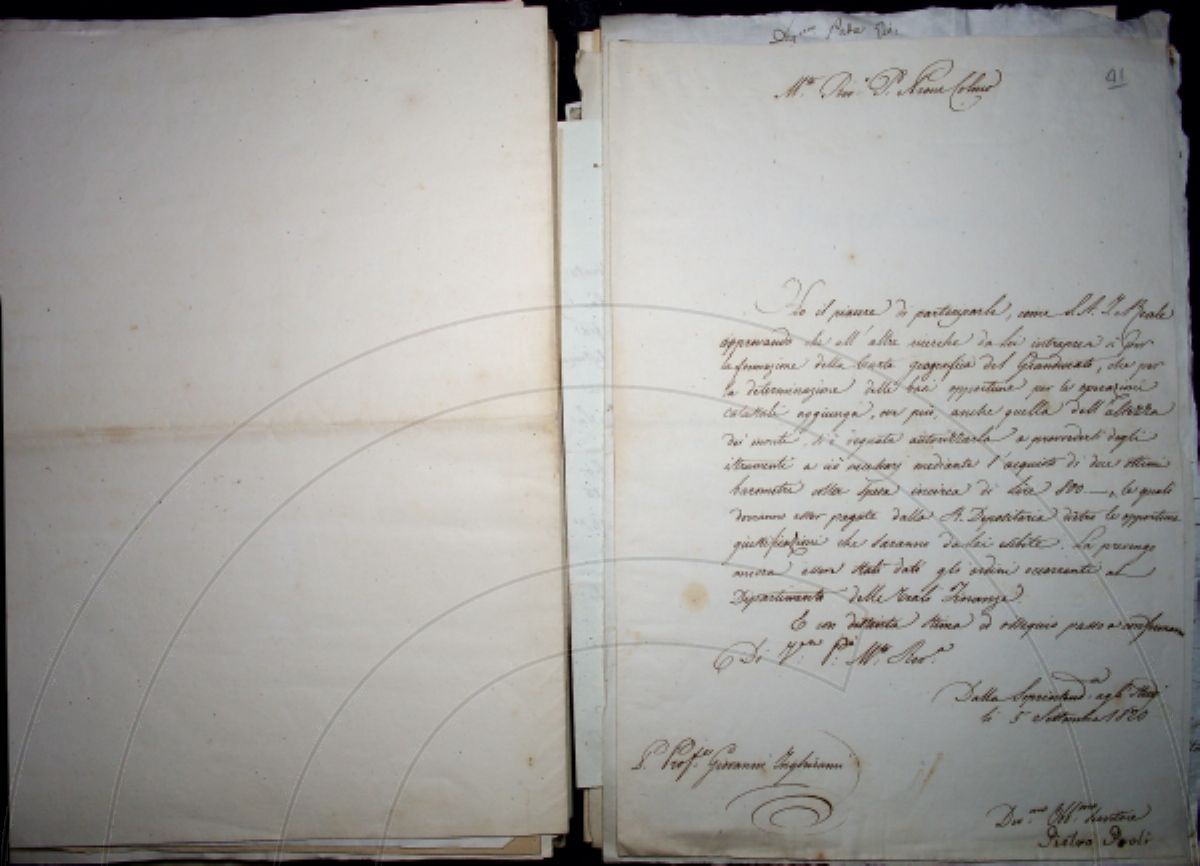 41
M.to Rev.o P.e Prone Colmo
Ho il piacere di parteciparle, come S. A. I. e Reale
approvando che all' altre ricerche da Lei intraprese sì per
la formazione della Carta geografica del Granducato, che per
la determinazione delle basi opportune per le operazioni
catastali aggiunga, ove può, anche quella dell' altezza
dei monti, si è degnata autorizzarla a provvedersi degli
istrumenti a ciò necessarj mediante l'acquisto di due ottimi
barometri colla spesa incirca di Lire 800 —, le quali
dovranno esser pagate dalla R. Depositeria dietro le opportune
giustificazioni che saranno da Lei esibite. La prevengo
ancora essere stati dati gli ordini occorrenti al
Dipartimento delle Reali Finanze
E con distinta stima ed ossequio passo a confermarmi
Di V.ra P.tà M.to Rev.a
Dalla Soprintend.za agli Studj
li 5 Settembre 1820
P. Prof.re Giovanni Inghirami
Dev.mo Obb.mo Servitore
Pietro Paoli